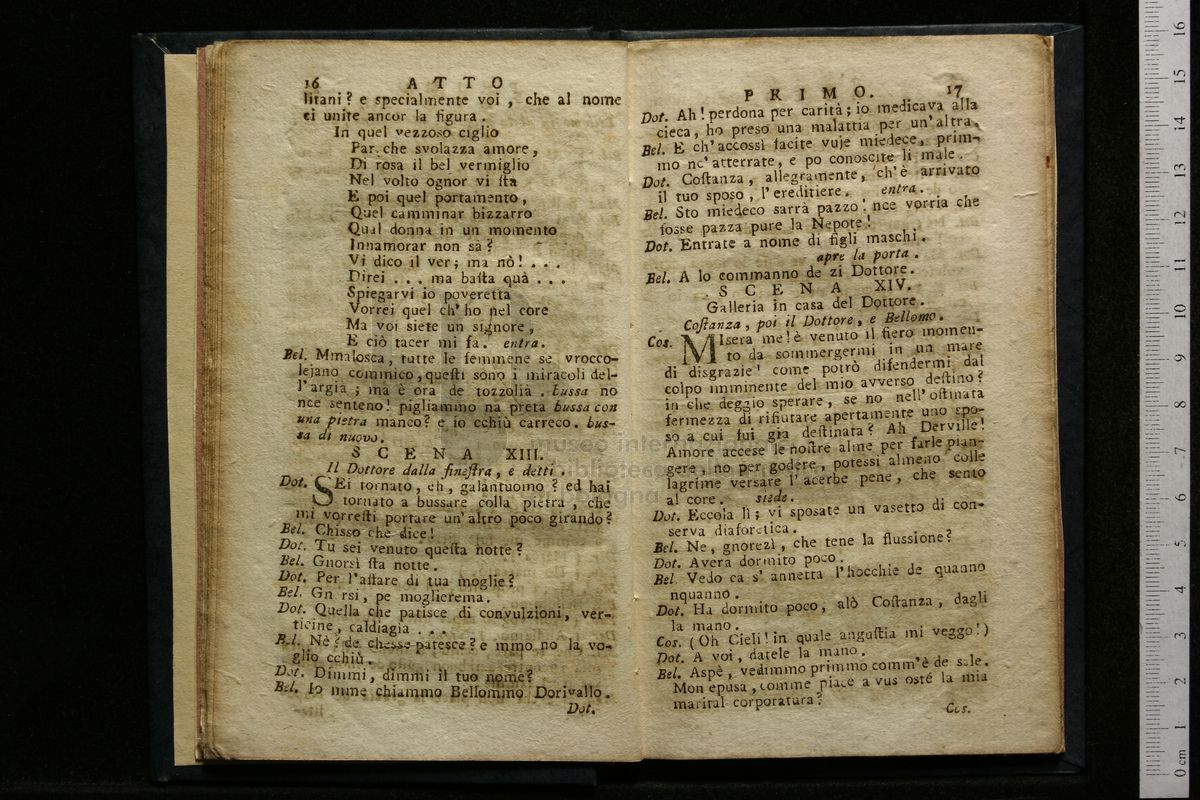 16 ATTO
litani? e specialmente voi, che al nome
ci unite ancor la figura.
In quel vezzoso ciglio
Par che svolazza amore,
Di rosa il bel vermiglio
Nel volto ognor vi sta
E poi quel portamento,
Quel camminar bizzarro
Qual donna in un momento
Innamorar non sà?
Vi dico il ver; ma nò! . . .
Direi . . . ma basta quà . . .
Spiegarvi io poveretta
Vorrei quel ch' ho nel core
Ma voi siete un signore,
E ciò tacer mi fa. entra.
Bel. Mmalosca, tutte le femmene se vrocco-
lejano commico, questi sono i miracoli del-
l'argia; ma è ora de tozzolia. bussa no
nce senteno! pigliammo na preta bussa con
una pietra manco? e io cchiù carreco. bus-
sa di nuovo.
SCENA XIII.
Il Dottore dalla finestra, e detti.
Dot. SEi tornato, eh, galantuomo? ed hai
tornato a bussare colla pietra, che
mi vorresti portare un'altro poco girando?
Bel. Chisso che dice!
Dot. Tu sei venuto questa notte?
Bel. Gnorsì sta notte.
Dot. Per l'affare di tua moglie?
Bel. Gn rsi, pe moglierema.
Dot. Quella che patisce di convulzioni, ver-
ticine, caldiagia . . .
Bel. Nè? de chesse patesce? e mmo no la vo-
glio cchiù.
Dot. Dimmi, dimmi il tuo nome?
Bel. Io mme chiammo Bellommo Dorivallo.
Dot.
PRIMO. 17
Dot. Ah! perdona per carità; io medicava alla
cieca, ho preso una malattia per un'altra.
Bel. E ch'accossì facite vuje miedece, prim-
mo nc'atterrate, e po conoscite li male.
Dot. Costanza, allegramente, ch'è arrivato
il tuo sposo, l'ereditiere. entra.
Bel. Sto miedeco sarrà pazzo! nce vorria che
fosse pazza pure la Nepote!
Dot. Entrate a nome di figli maschi.
apre la porta.
Bel. A lo commanno de zi Dottore.
SCENA XIV.
Galleria in casa del Dottore.
Costanza, poi il Dottore, e Bellomo.
Cos. MIsera me! è venuto il fiero momen-
to da sommergermi in un mare
di disgrazie! come potrò difendermi dal
colpo imminente del mio avverso destino?
in che deggio sperare, se no nell'ostinata
fermezza di rifiutare apertamente uno spo-
so a cui fui già destinata? Ah Derville!
Amore accese le nostre alme per farle pian-
gere, no per godere, potessi almeno colle
lagrime versare l'acerbe pene, che sento
al core. siede.
Dot. Eccola lì; vi sposate un vasetto di con-
serva diaforetica.
Bel. Ne, gnorezì, che tene la flussione?
Dot. Avera dormito poco.
Bel Vedo ca s'annetta l'hocchie de quanno
nquanno.
Dot. Ha dormito poco, alò Costanza, dagli
la mano.
Cos. (Oh Cieli! in quale angustia mi veggo!)
Dot. A voi, datele la mano.
Bel. Aspè, vedimmo primmo comm'è de sale.
Mon epusa, comme piace a vus osté la mia
marital corporatura?
Cos.
museo internazionale
biblioteca